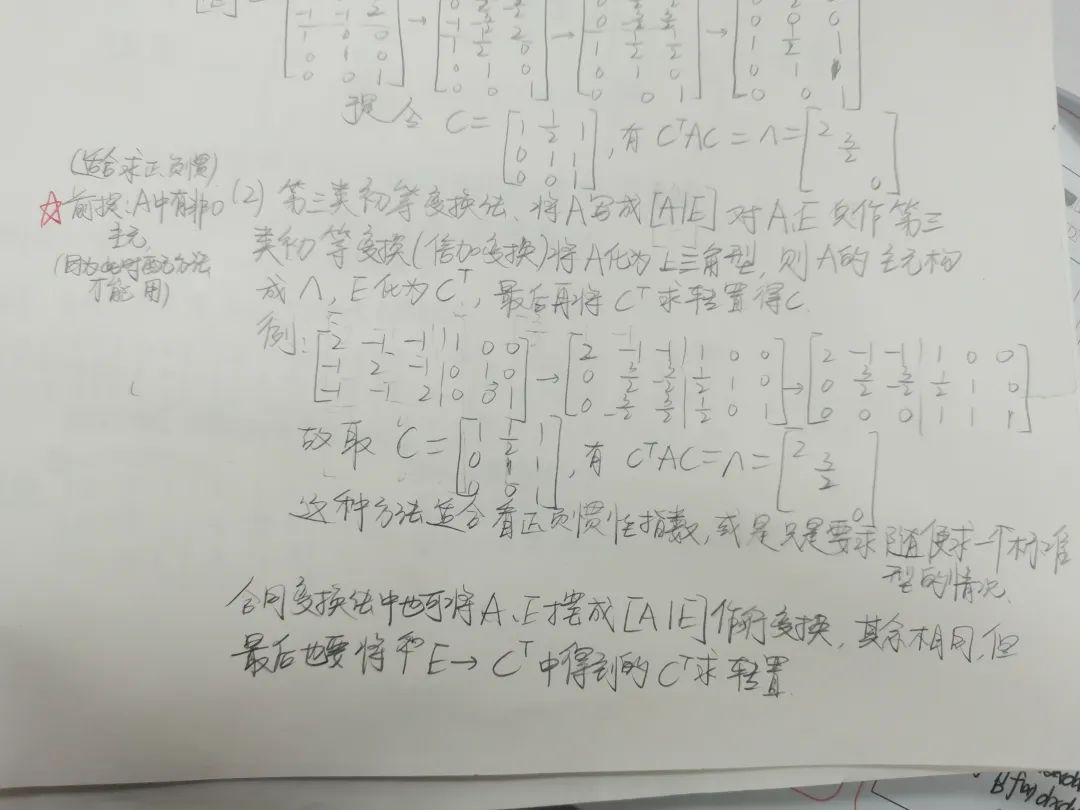 -1 -1 2
1 0 0
0 1 0
0 0 1
→
现令 C = [1 1/2 1; 0 1 1; 0 0 1], 有 CᵀAC = Λ = [2 3/2 0]
(适合求正负惯)
☆前提:A中有非0主元
(因为此时配方法才能用)
(2) 第三类初等变换法、将A写成[A|E]对A,E只作第三
类初等变换(倍加变换)将A化为上三角型,则A的主元构
成Λ,E化为Cᵀ,最后再将Cᵀ求转置得C.
例: [2 -1 -1 | 1 0 0; -1 2 -1 | 0 1 0; -1 -1 2 | 0 0 1] → [2 -1 -1 | 1 0 0; 0 3/2 -3/2 | 1/2 1 0; 0 -3/2 3/2 | 1/2 0 1] → [2 -1 -1 | 1 0 0; 0 3/2 -3/2 | 1/2 1 0; 0 0 0 | 1 1 1]
故取 C = [1 1/2 1; 0 1 1; 0 0 1], 有 CᵀAC = Λ = [2 3/2 0]
这种方法适合看正负惯性指数,或是只是要求随便求一个标准
型的情况.
合同变换法中也可将A、E摆成[A|E]作行变换,其余相同,但
最后也要将 E→Cᵀ中得到的Cᵀ求转置.